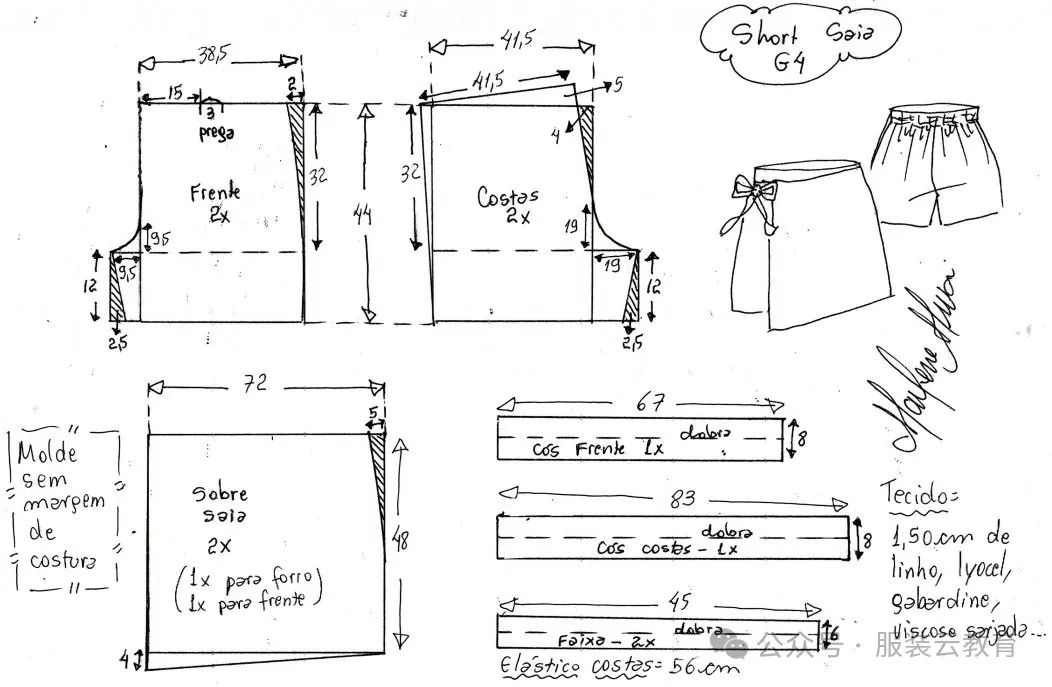 Short Saia
G4
38,5
15
3
prega
2
Frente
2x
32
9,5
9,5
12
2,5
44
41,5
41,5
5
4
32
Costas
2x
19
19
12
2,5
72
5
Sobre
saia
2x
(1x para forro)
(1x para frente)
48
4
Molde
sem
margem
de
costura
67
dobra
Cós Frente 1x
8
83
dobra
Cós costas - 1x
8
45
dobra
Faixa - 2x
6
Elástico costas= 56cm
Tecido=
1,50cm de
linho, lyocel,
gabardine,
viscose sarjada...
公众号 · 服装云教育